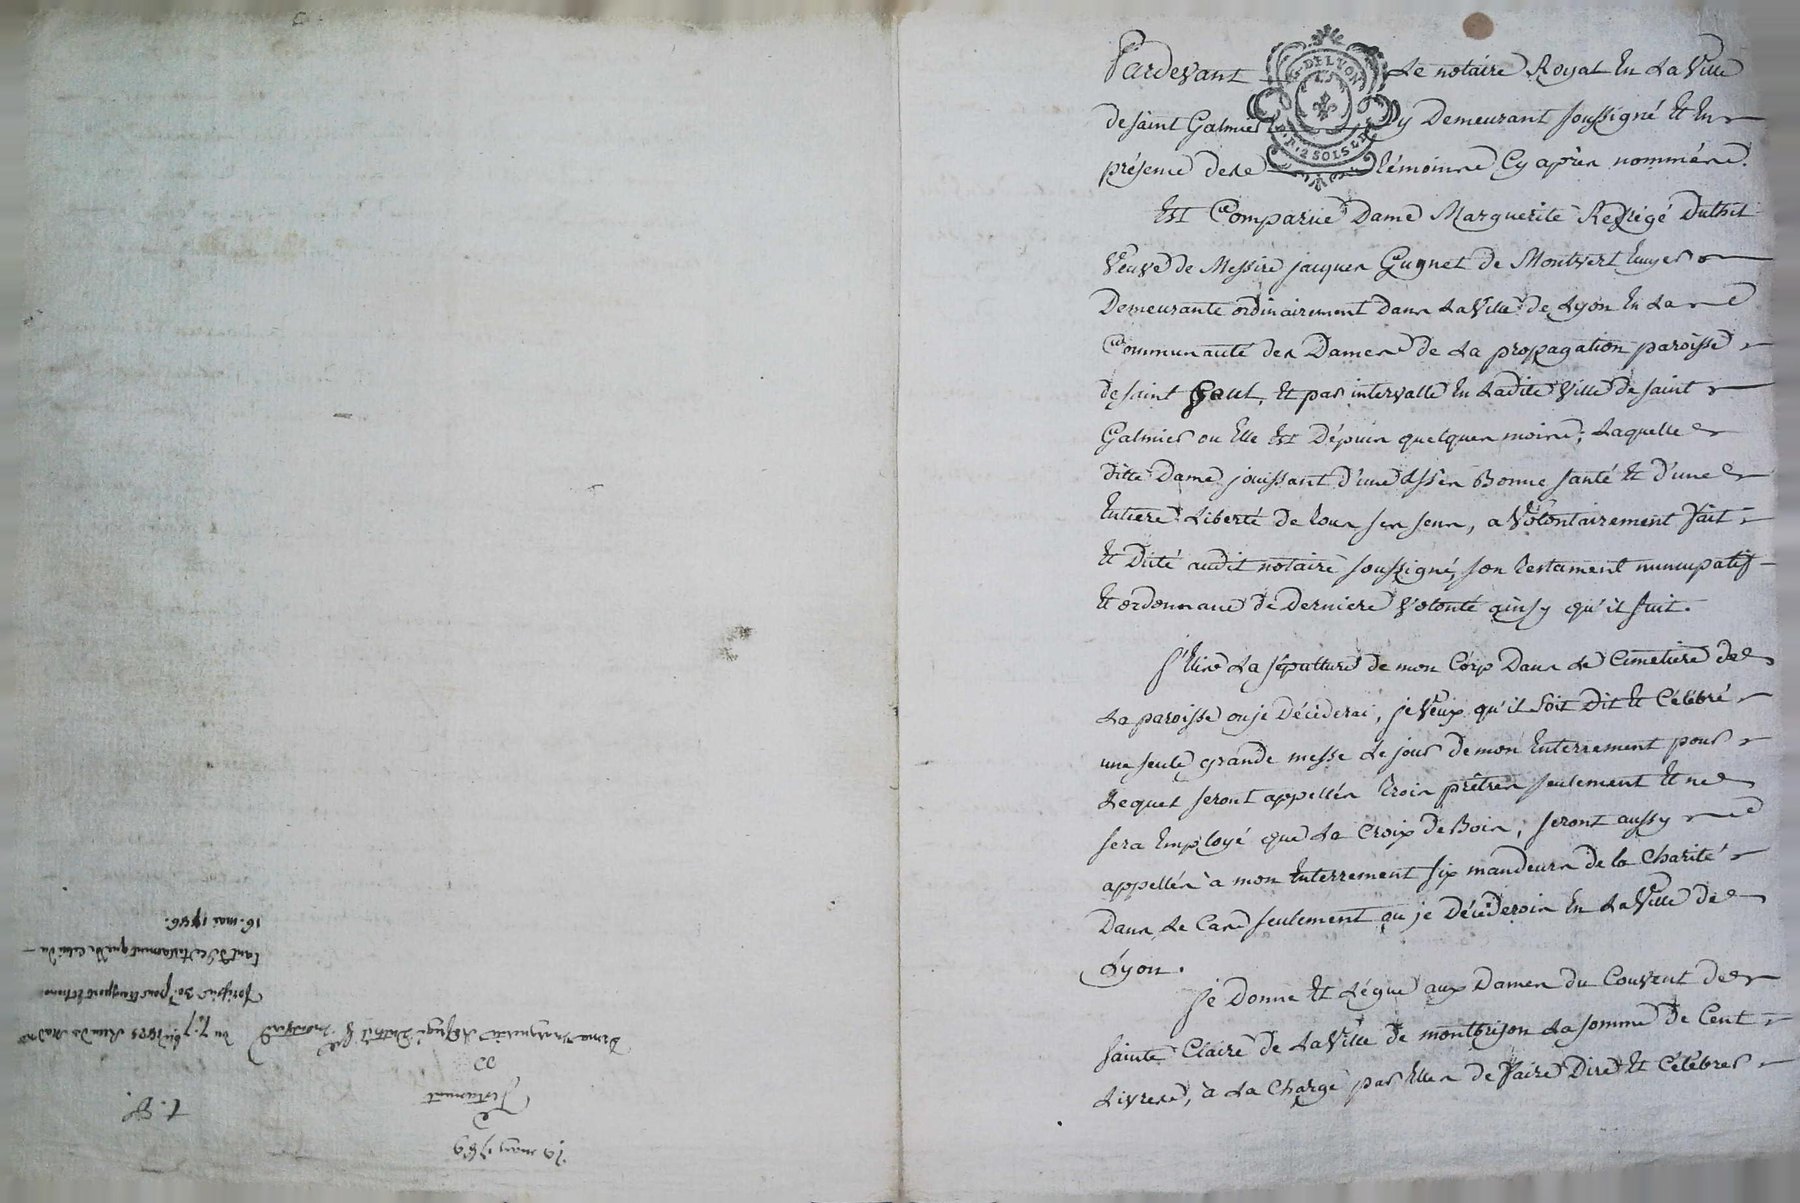 Pardevant Le notaire Royal En La Ville
G. DE LYON
de saint Galmier y Demeurant soussigné Et En
2 SOLS
présence de témoins Cy après nommés.
Est Comparue Dame Marguerite Reffegé Duthil
Veuve de Messire jacques Gugnet de Montvert Ecuyer
Demeurante ordinairement Dans La Ville de Lyon En La
Communauté des Dames de La propagation paroisse
de saint Paul, Et par intervalle En Ladite Ville de saint
Galmier ou Elle Est Dépuis quelques mois, Laquelle
ditte Dame jouissant d'une Assés Bonne santé Et d'une
Entiere Liberté de tous ses sens, a Volontairement fait
Et Dicté audit notaire soussigné, son testament nuncupatif
Et ordonnance de Derniere Volonté ainsy qu'il suit.
J'Elis La sépulture de mon Corp Dans Le Cimetiere de
La paroisse ou je Décéderai, je Veux qu'il soit Dit Et Célébré
une seule grande messe Le jour de mon Enterrement pour
Lequel seront appellés trois prêtres seulement Et ne
sera Employé que La Croix de Bois, seront aussy
appellés a mon Enterrement six mandeurs de la Charité
Dans Le Cas seulement ou je Décéderois En La Ville de
Lyon.
Je Donne Et Légue aux Dames du Couvent de
sainte Claire de La Ville de montbrison La somme de Cent
Livres, à La Charge par Elles de faire Dire Et Célébrer
may 1769
Testament
Dame Marguerite Duthil
du 7.
tant de ce testament que de celui du
16. mai 1746.